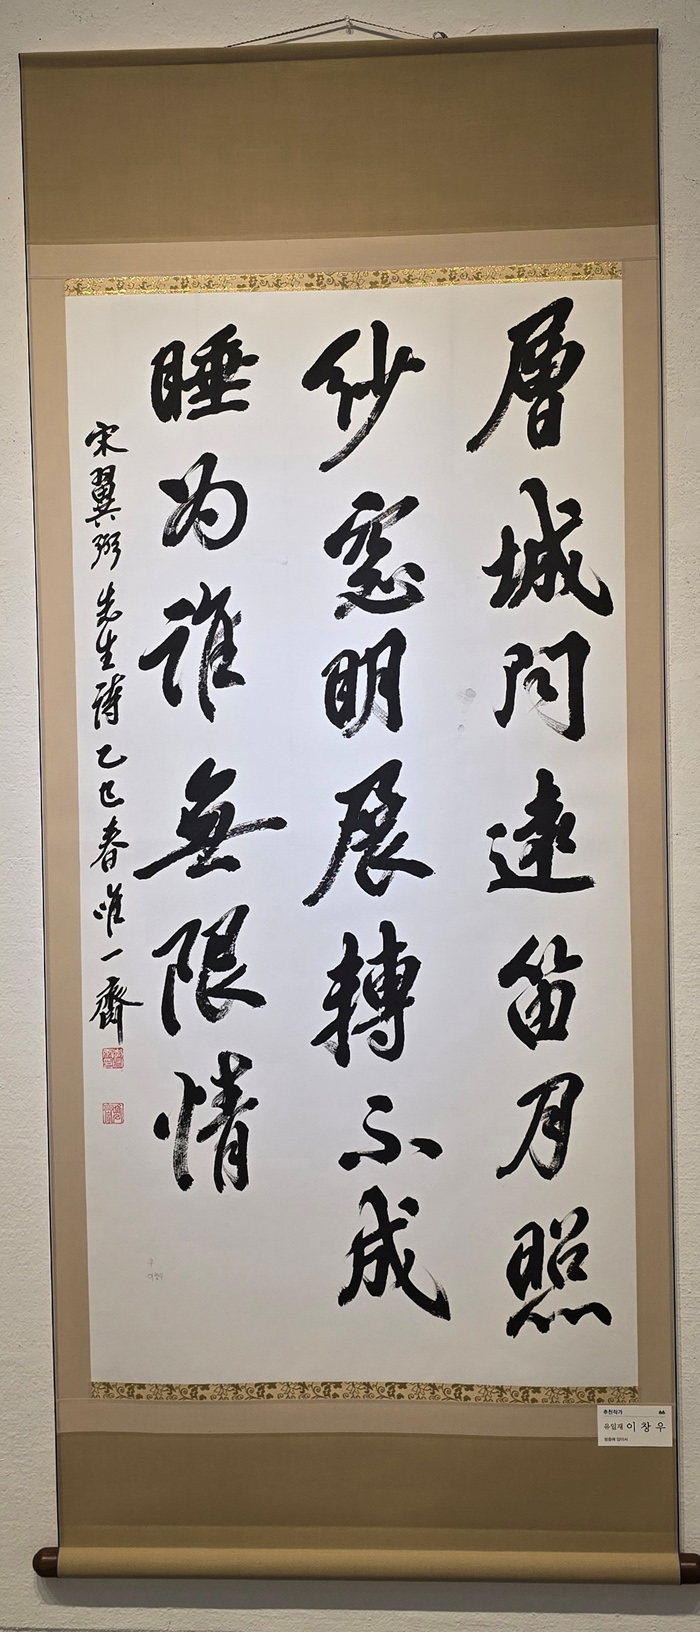 層城門遠笛月照
紗窓明展轉不成
睡为誰無限情
宋翼弼先生詩乙巳春唯一齋
추천작가
유일재 이창우